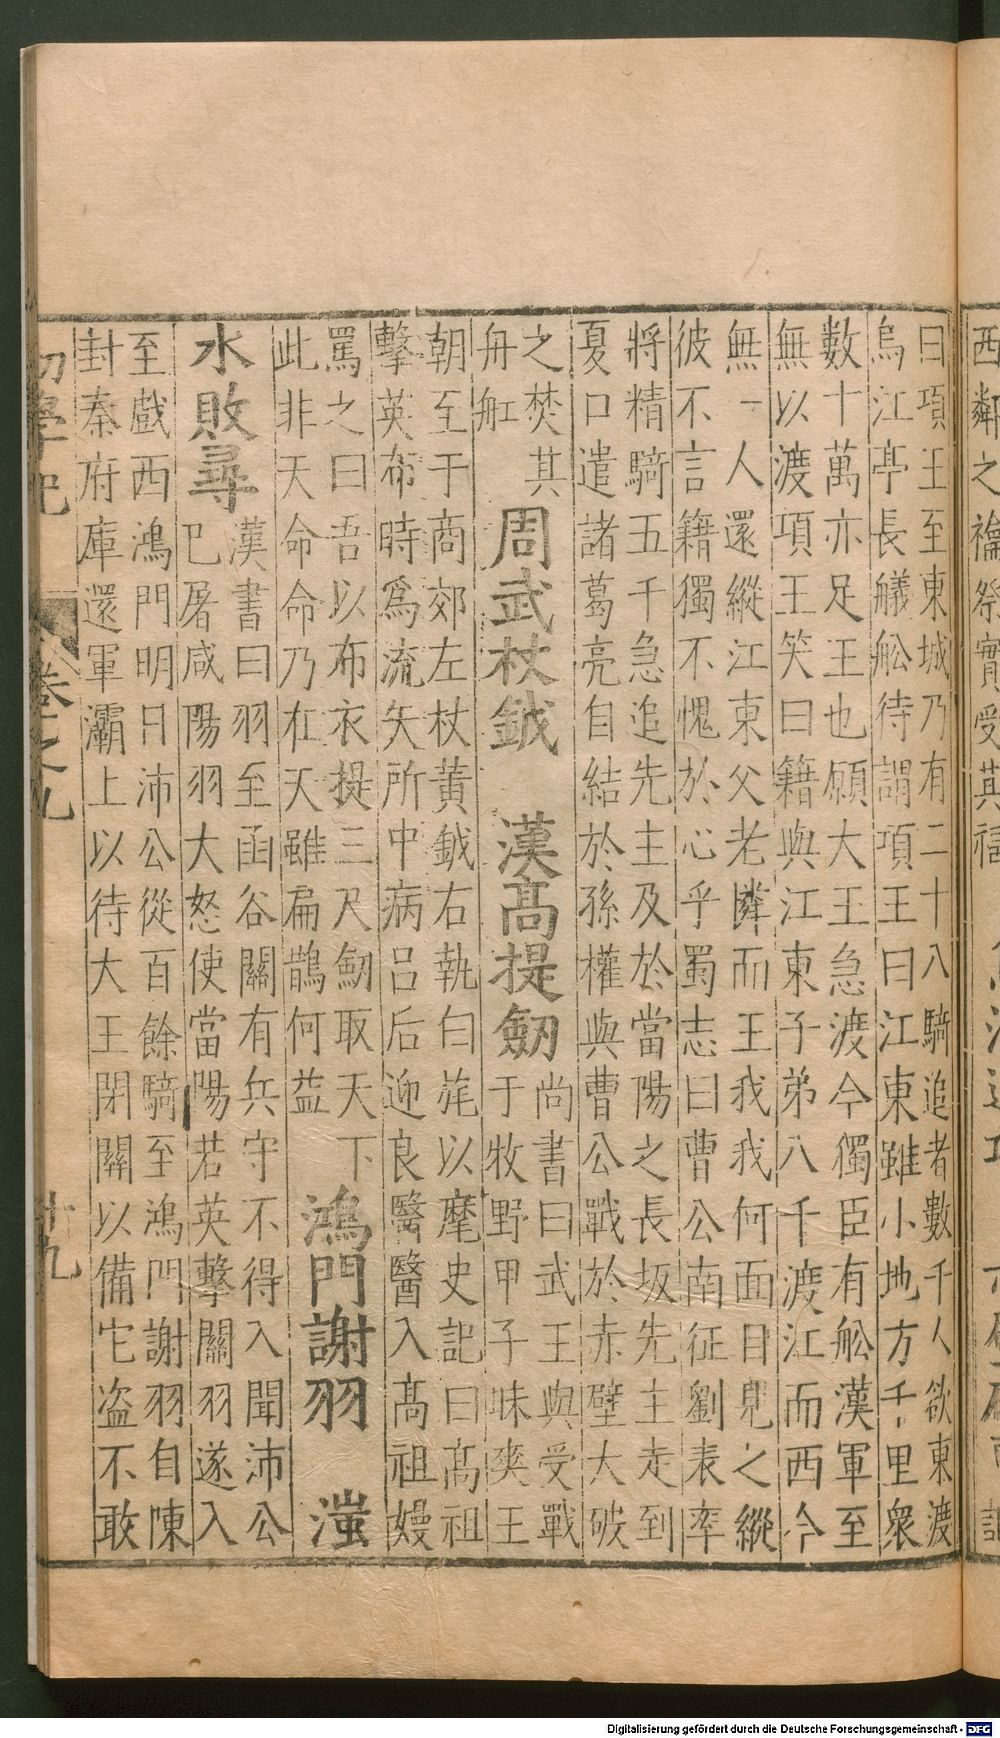 曰項王至東城乃有二十八騎追者數千人欲東渡
烏江亭長艤舩待謂項王曰江東雖小地方千里衆
數十萬亦足王也願大王急渡今獨臣有舩漢軍至
無以渡項王笑曰籍與江東子弟八千渡江而西今
無一人還縱江東父老憐而王我我何面目見之縱
彼不言籍獨不愧於心乎蜀志曰曹公南征劉表率
將精騎五千急追先主及於當陽之長坂先主走到
夏口遣諸葛亮自結於孫權與曹公戰於赤壁大破
之焚其
舟舡
周武杖鉞 漢高提劒
尚書曰武王與受戰
于牧野甲子昧爽王
朝至于商郊左杖黃鉞右執白旄以麾史記曰高祖
擊英布時爲流矢所中病吕后迎良醫醫入髙祖嫚
罵之曰吾以布衣提三尺劒取天下
此非天命命乃在天雖扁鵲何益
鴻門謝羽 滍
水敗尋
漢書曰羽至函谷關有兵守不得入聞沛公
已屠咸陽羽大怒使當陽若英擊關羽遂入
至戲西鴻門明日沛公從百餘騎至鴻門謝羽自陳
封秦府庫還軍灞上以待大王閉關以備它盗不敢
初學記 卷之九 十九
西鄰之禴祭實受其福